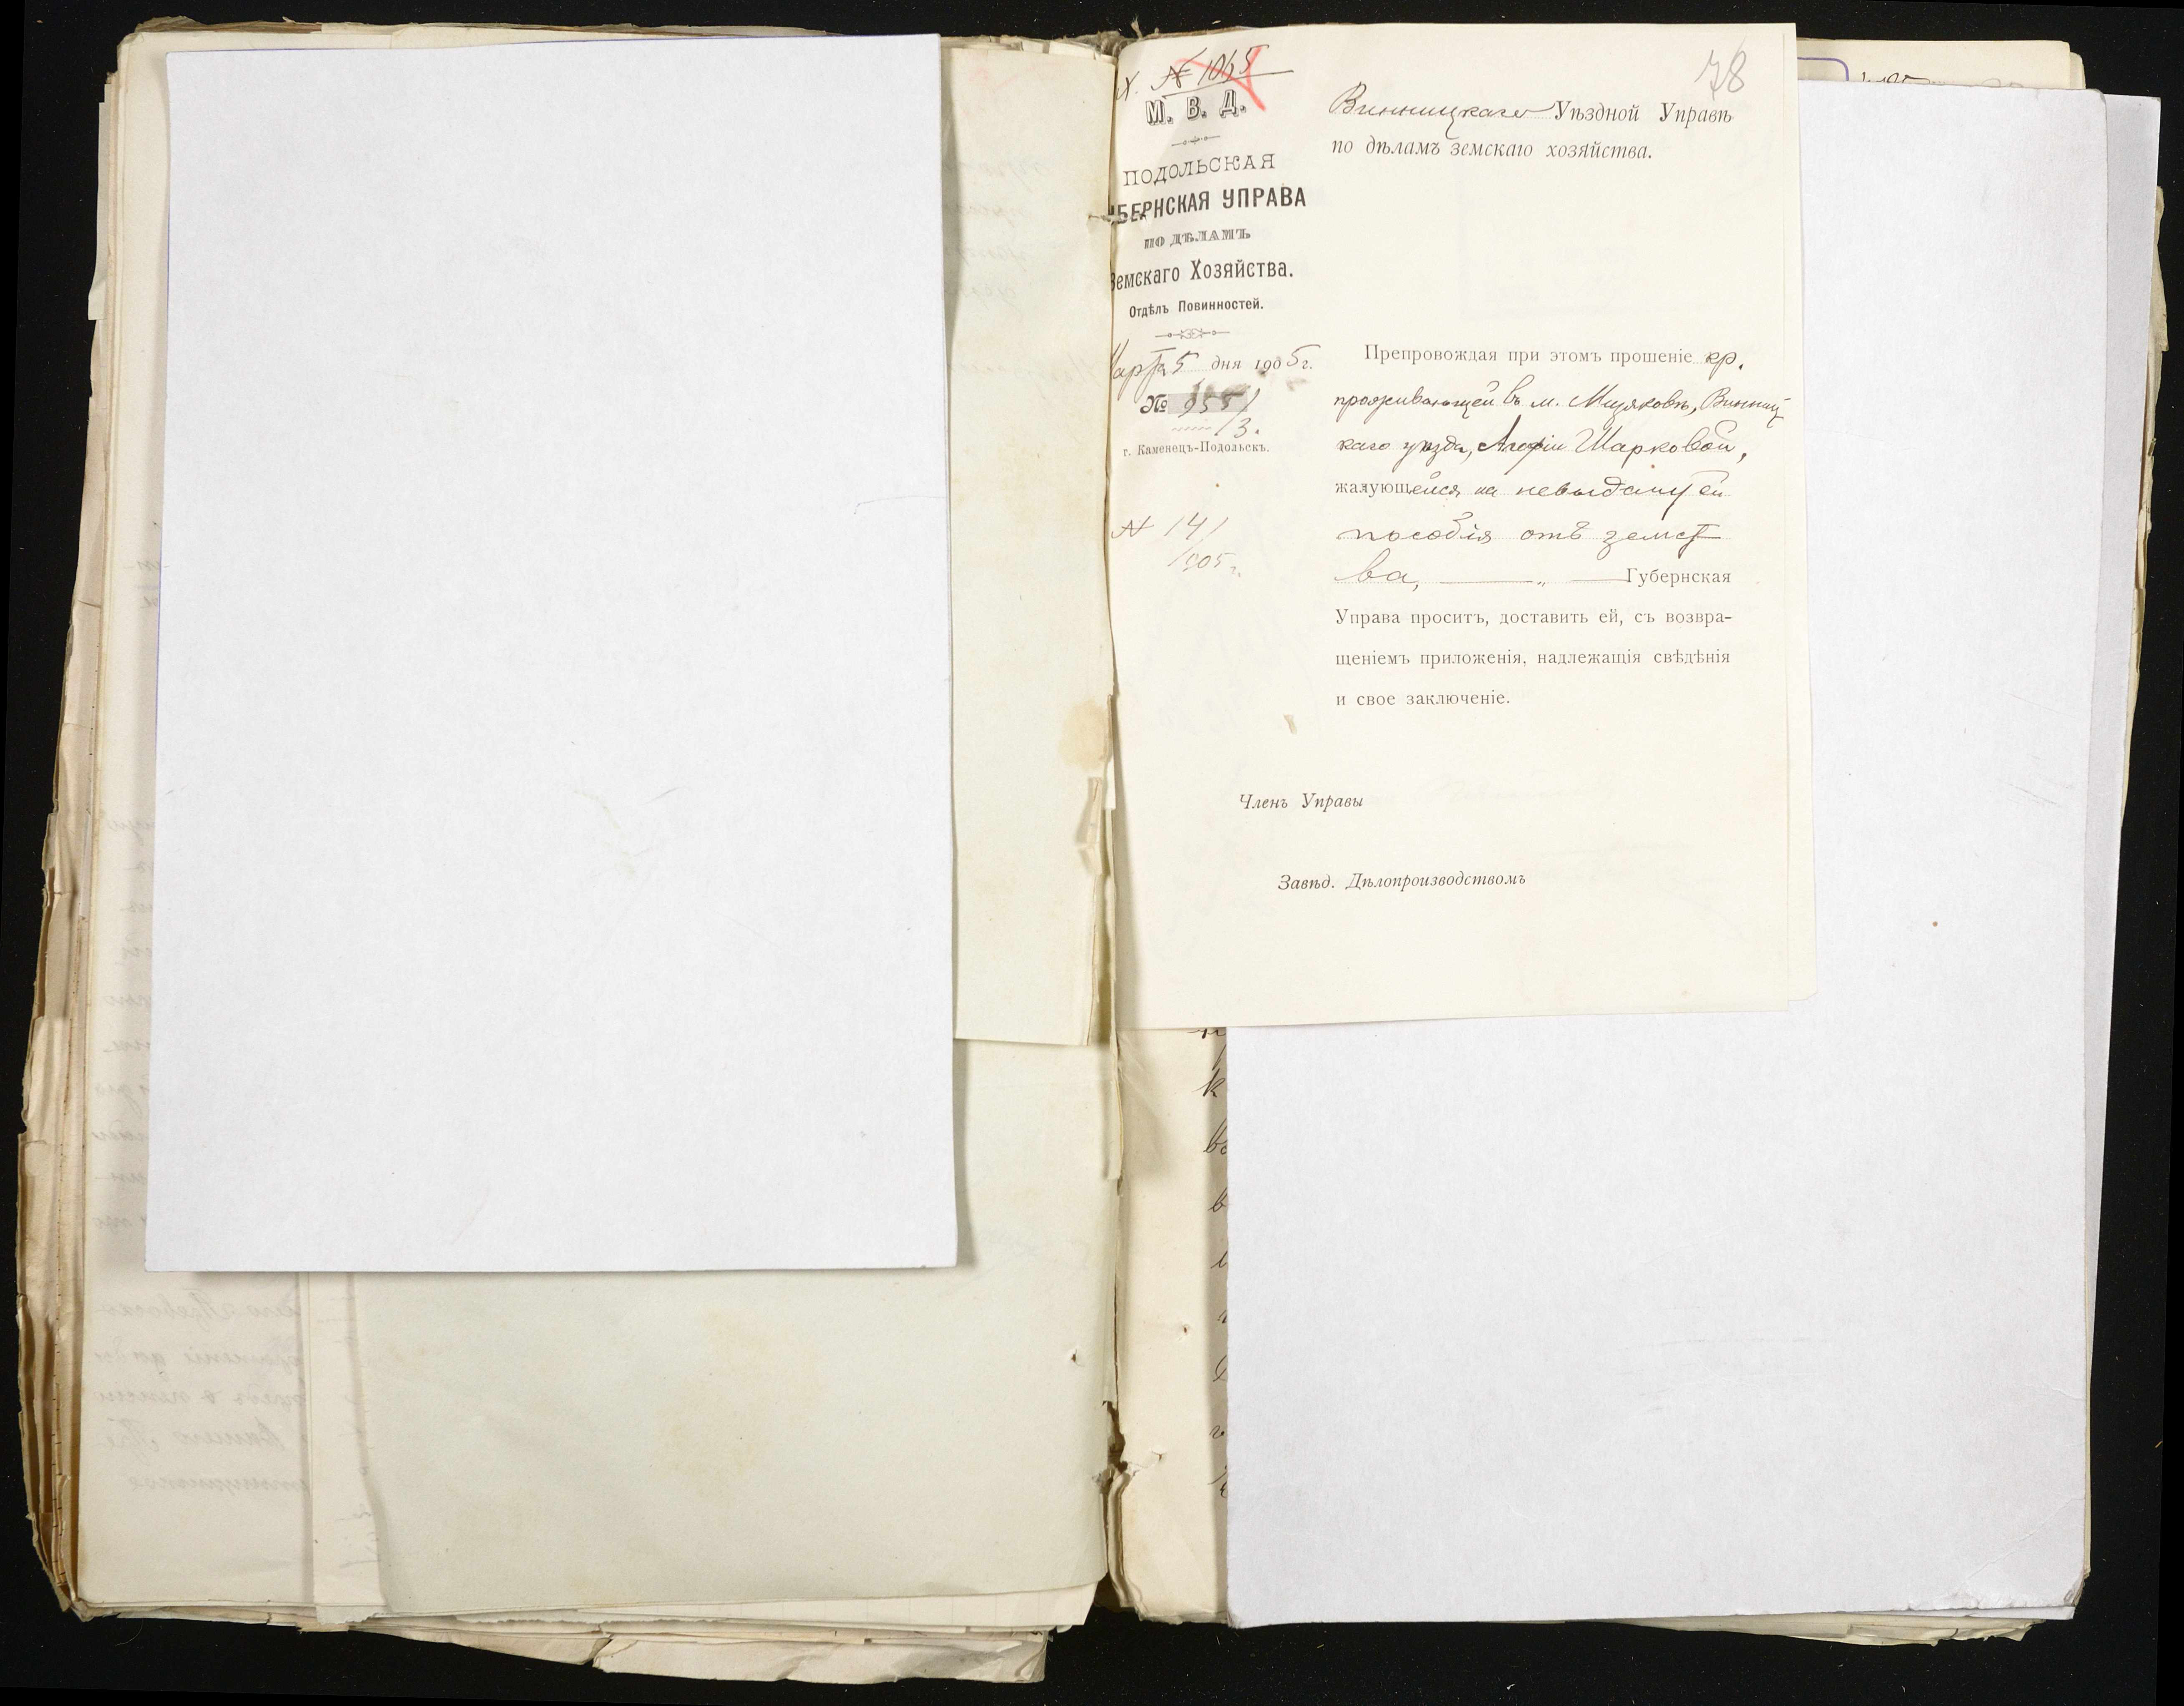 78
Х. № 1065
М. В. Д.
ПОДОЛЬСКАЯ
БЕРНСКАЯ УПРАВА
ПО ДѢЛАМЪ
Земскаго Хозяйства.
Отдѣлъ Повинностей.
Марта 5 дня 1905 г.
№ 955/
13.
г. Каменецъ-Подольскъ.
№ 141
1905 г.
Винницкаго Уѣздной Управѣ
по дѣламъ земскаго хозяйства.
Препровождая при этомъ прошеніе кр.
проживающей въ м. Мизяковѣ, Винниц
каго уѣзда, Шарковой,
жалующейся на невыдачу ей
пособія отъ земст
ва, „ Губернская
Управа проситъ, доставить ей, съ возвра-
щеніемъ приложенія, надлежащія свѣдѣнія
и свое заключеніе.
Членъ Управы
Завѣд. Дѣлопроизводствомъ